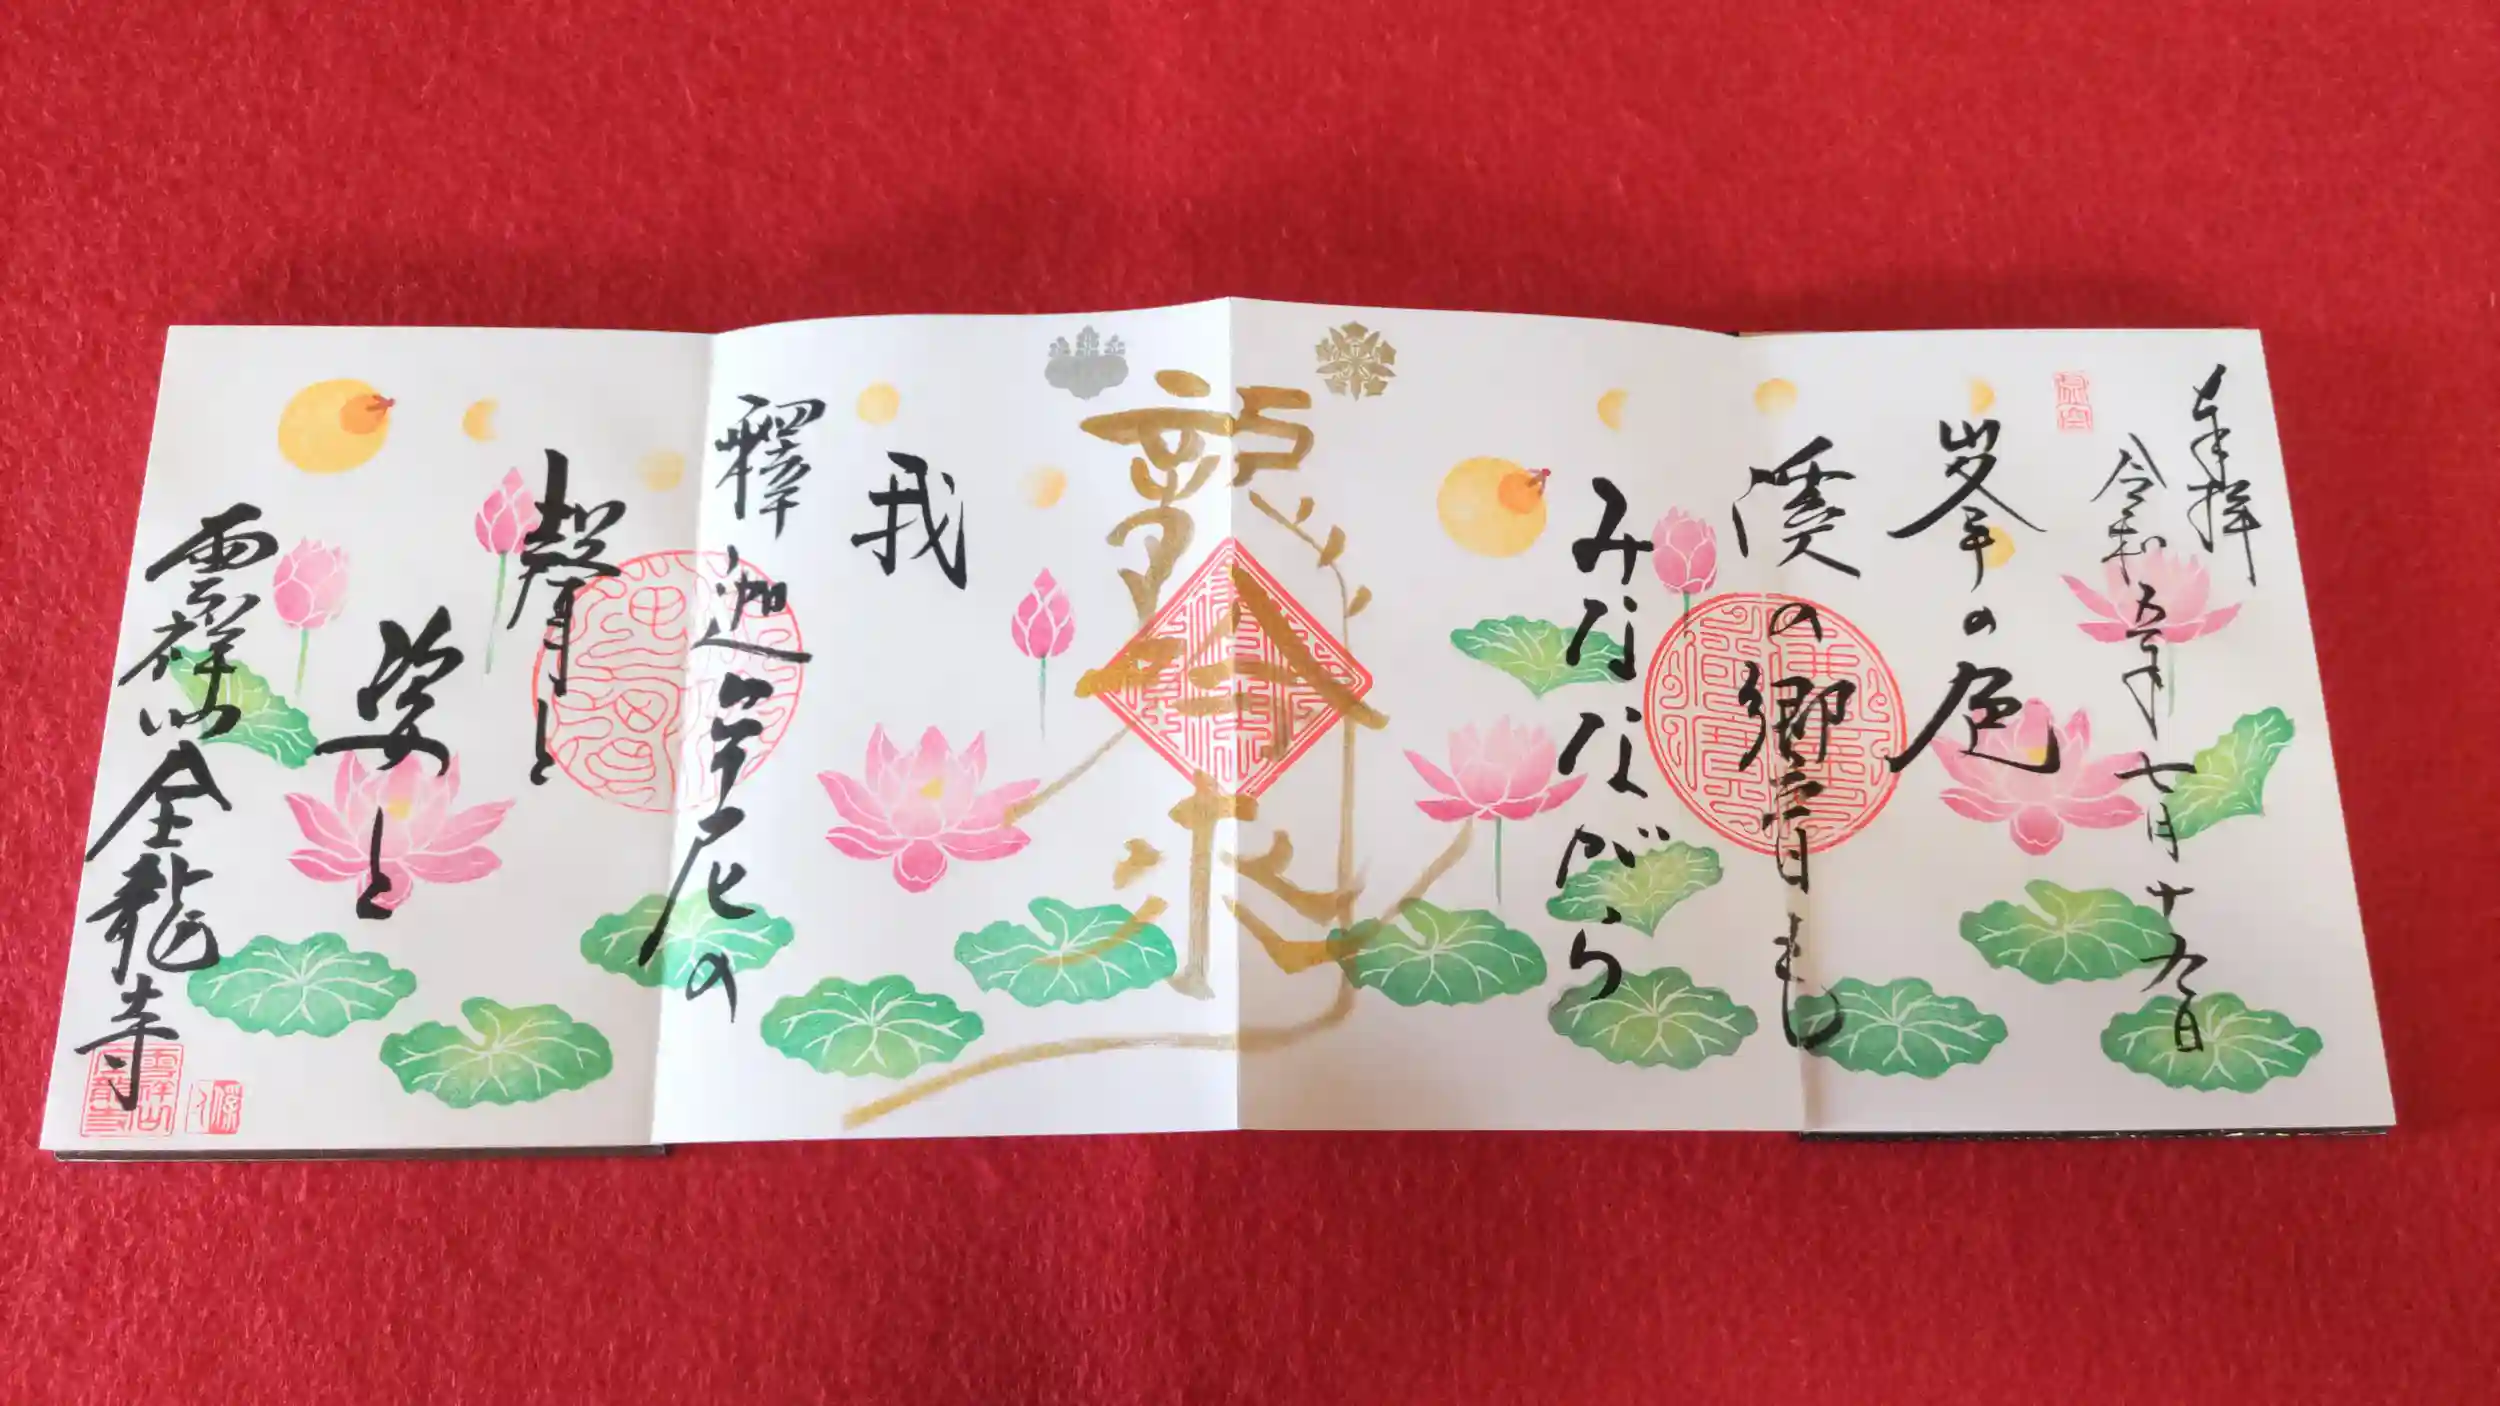 奉拝
令和五年七月十九日
峯の色
溪の響も
みなながら
龍吟
我
釋迦牟尼の
聲と
姿と
雲祥山金龍寺